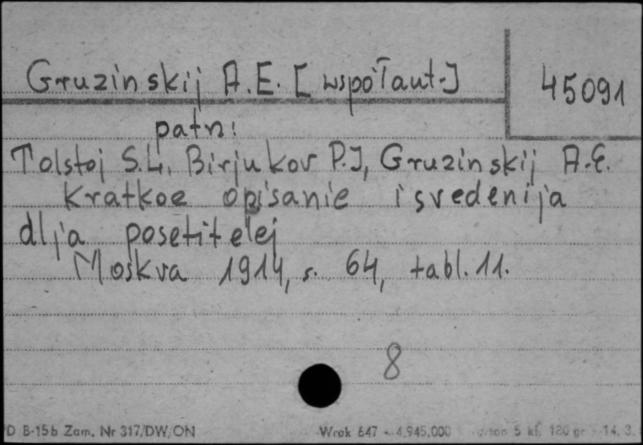 Gruzinskij A.E. [współaut.]
45091
patrz:
Tolstoj S.L., Birjukov P.I, Gruzinskij A.E.
Kratkoe opisanie i svedenija
dlja posetitelej
Moskva 1914, s. 64, tabl. 11.
8
D B-15b Zam. Nr 317/DW/ON Wrok 647 - 4.945.000 5 kl. 120 gr - 14.3